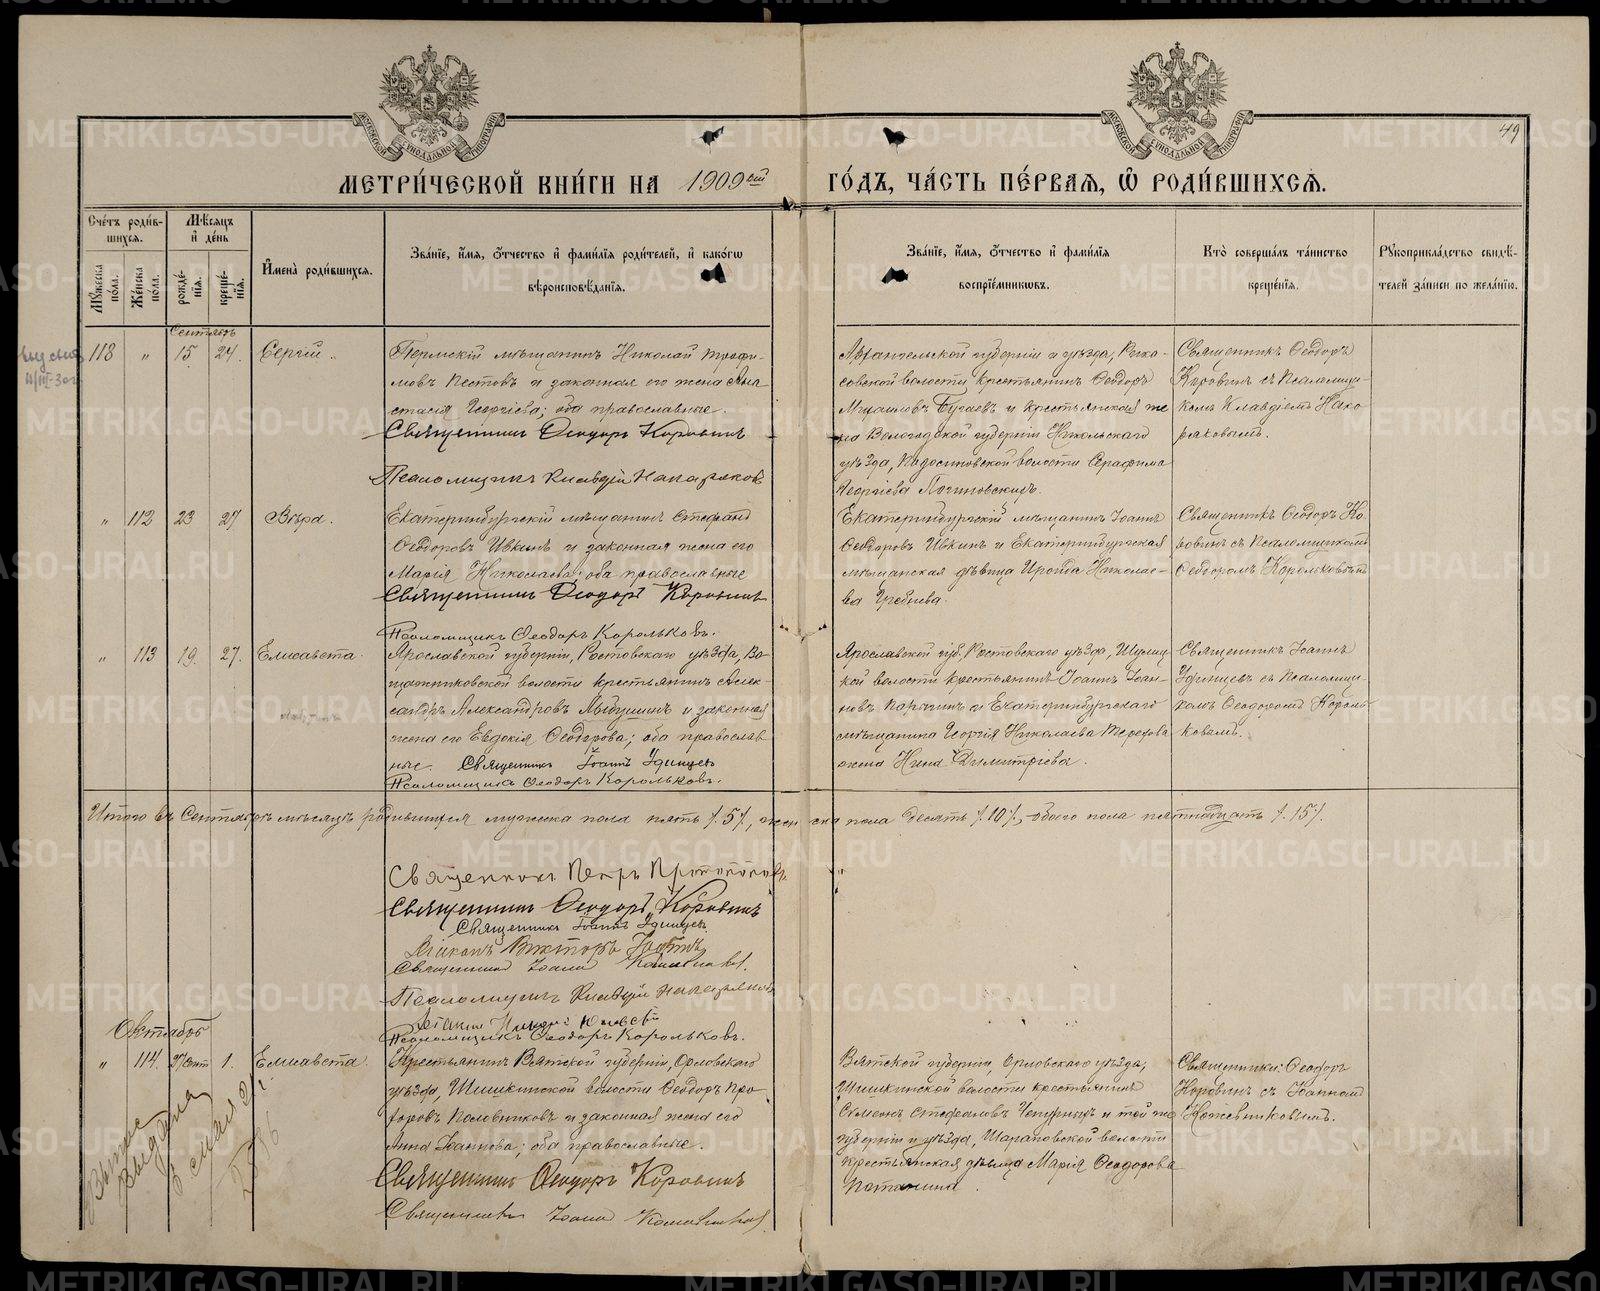 METRIKI.GASO-URAL.RU
МОСКОВСКОЙ СѴНОДАЛЬНОЙ ТИПОГРАФІИ
МОСКОВСКОЙ СѴНОДАЛЬНОЙ ТИПОГРАФІИ
49
МЕТРИ́ЧЕСКОЙ КНИ́ГИ НА 1909ый ГО́ДЪ, ЧА́СТЬ ПЕ́РВАѦ, Ѽ РОДИ́ВШИХСѦ.
Сче́тъ роди́в-
шихсѧ.
Мꙋжеска по́ла.
Же́нска по́ла.
Мѣ́сѧцъ
и҆ де́нь
рожде́-
нїѧ.
креще́-
нїѧ.
И҆мена̀ роди́вшихсѧ.
Зва́нїе, и҆́мѧ, ѻ҆́тчество и҆ фами́лїѧ роди́телей, и҆ како́гѡ
вѣроисповѣ́данїѧ.
Зва́нїе, и҆́мѧ, ѻ҆́тчество и҆ фами́лїѧ
воспрїе́мникѡвъ.
Кто̀ соверша́лъ та́инство
креще́нїѧ.
Рꙋкоприкла́дство свидѣ́-
телей за́писи по жела́нїю.
Сентябрь
118 " 15. 24. Сергій.
Пермскій мѣщанинъ Николай Трофи-
мовъ Пестовъ и законная его жена Ана-
стасія Георгіева; оба православные.
Священникъ Ѳеодоръ Коровинъ
Псаломщикъ Клавдій
Архангельской губерніи и уѣзда, Рика-
совской волости, крестьянинъ Ѳеодоръ
Михаиловъ Бугаевъ и крестьянская же
на Вологодской губерніи Никольскаго
уѣзда, Подосиновской волости Серафима
Георгіева
Священникъ Ѳеодоръ
Коровинъ съ Псаломщи-
комъ Клавдіемъ Нако-
ряковымъ.
" 112 23 27 Вѣра.
Екатеринбургскій мѣщанинъ Стефанъ
Ѳеодоровъ Ивкинъ и законная жена его
Марія Николаева; оба православные
Священникъ Ѳеодоръ Коровинъ
Псаломщикъ Ѳеодоръ Корольковъ.
Екатеринбургскій мѣщанинъ Іоаннъ
Ѳеодоровъ Ивкинъ и Екатеринбургская
мѣщанская дѣвица Ираида Николае-
ва
Священникъ Ѳеодоръ Ко-
ровинъ съ Псаломщикомъ
Ѳеодоромъ Корольковымъ
" 113 19. 27. Елисавета.
Ярославской губерніи, Ростовскаго уѣзда, Во-
щажниковской волости крестьянинъ Алек-
сандръ Александровъ и законная
жена его Евдокія Ѳеодорова; оба православ
ные. Священникъ Іоаннъ Удинцевъ
Псаломщикъ Ѳеодоръ Корольковъ.
Ярославской губ. Ростовскаго уѣзда,
кой волости крестьянинъ Іоаннъ Іоан-
новъ и Екатеринбургскаго
мѣщанина Георгія Николаева Терехова
жена Нина Димитріева.
Священникъ Іоаннъ
Удинцевъ съ Псаломщи-
комъ Ѳеодоромъ Король-
ковымъ.
Итого въ Сентябрѣ мѣсяцѣ родившихся мужска пола пять /5/, женска пола десять /10/, обоего пола пятнадцать /15/.
Священникъ Петръ
Священникъ Ѳеодоръ Коровинъ
Священникъ Іоаннъ Удинцевъ.
Діаконъ Викторъ
Священникъ Іоаннъ
Псаломщикъ Клавдій
Псаломщикъ Ѳеодоръ Корольковъ.
Октябрь
" 114. 27 сент 1. Елисавета.
Крестьянинъ Вятской губерніи, Орловскаго
уѣзда, Шишкинской волости Ѳеодоръ Про-
хоровъ Половниковъ и законная жена его
Анна Іоаннова; оба православные.
Священникъ Ѳеодоръ Коровинъ
Священникъ Іоаннъ
Вятской губерніи, Орловскаго уѣзда,
Шишкинской волости крестьянинъ
Симеонъ Стефановъ и той же
губерніи и уѣзда, Шараповской волости
крестьянская дѣвица Марія Ѳеодорова
Священники: Ѳеодоръ
Коровинъ съ Іоанномъ